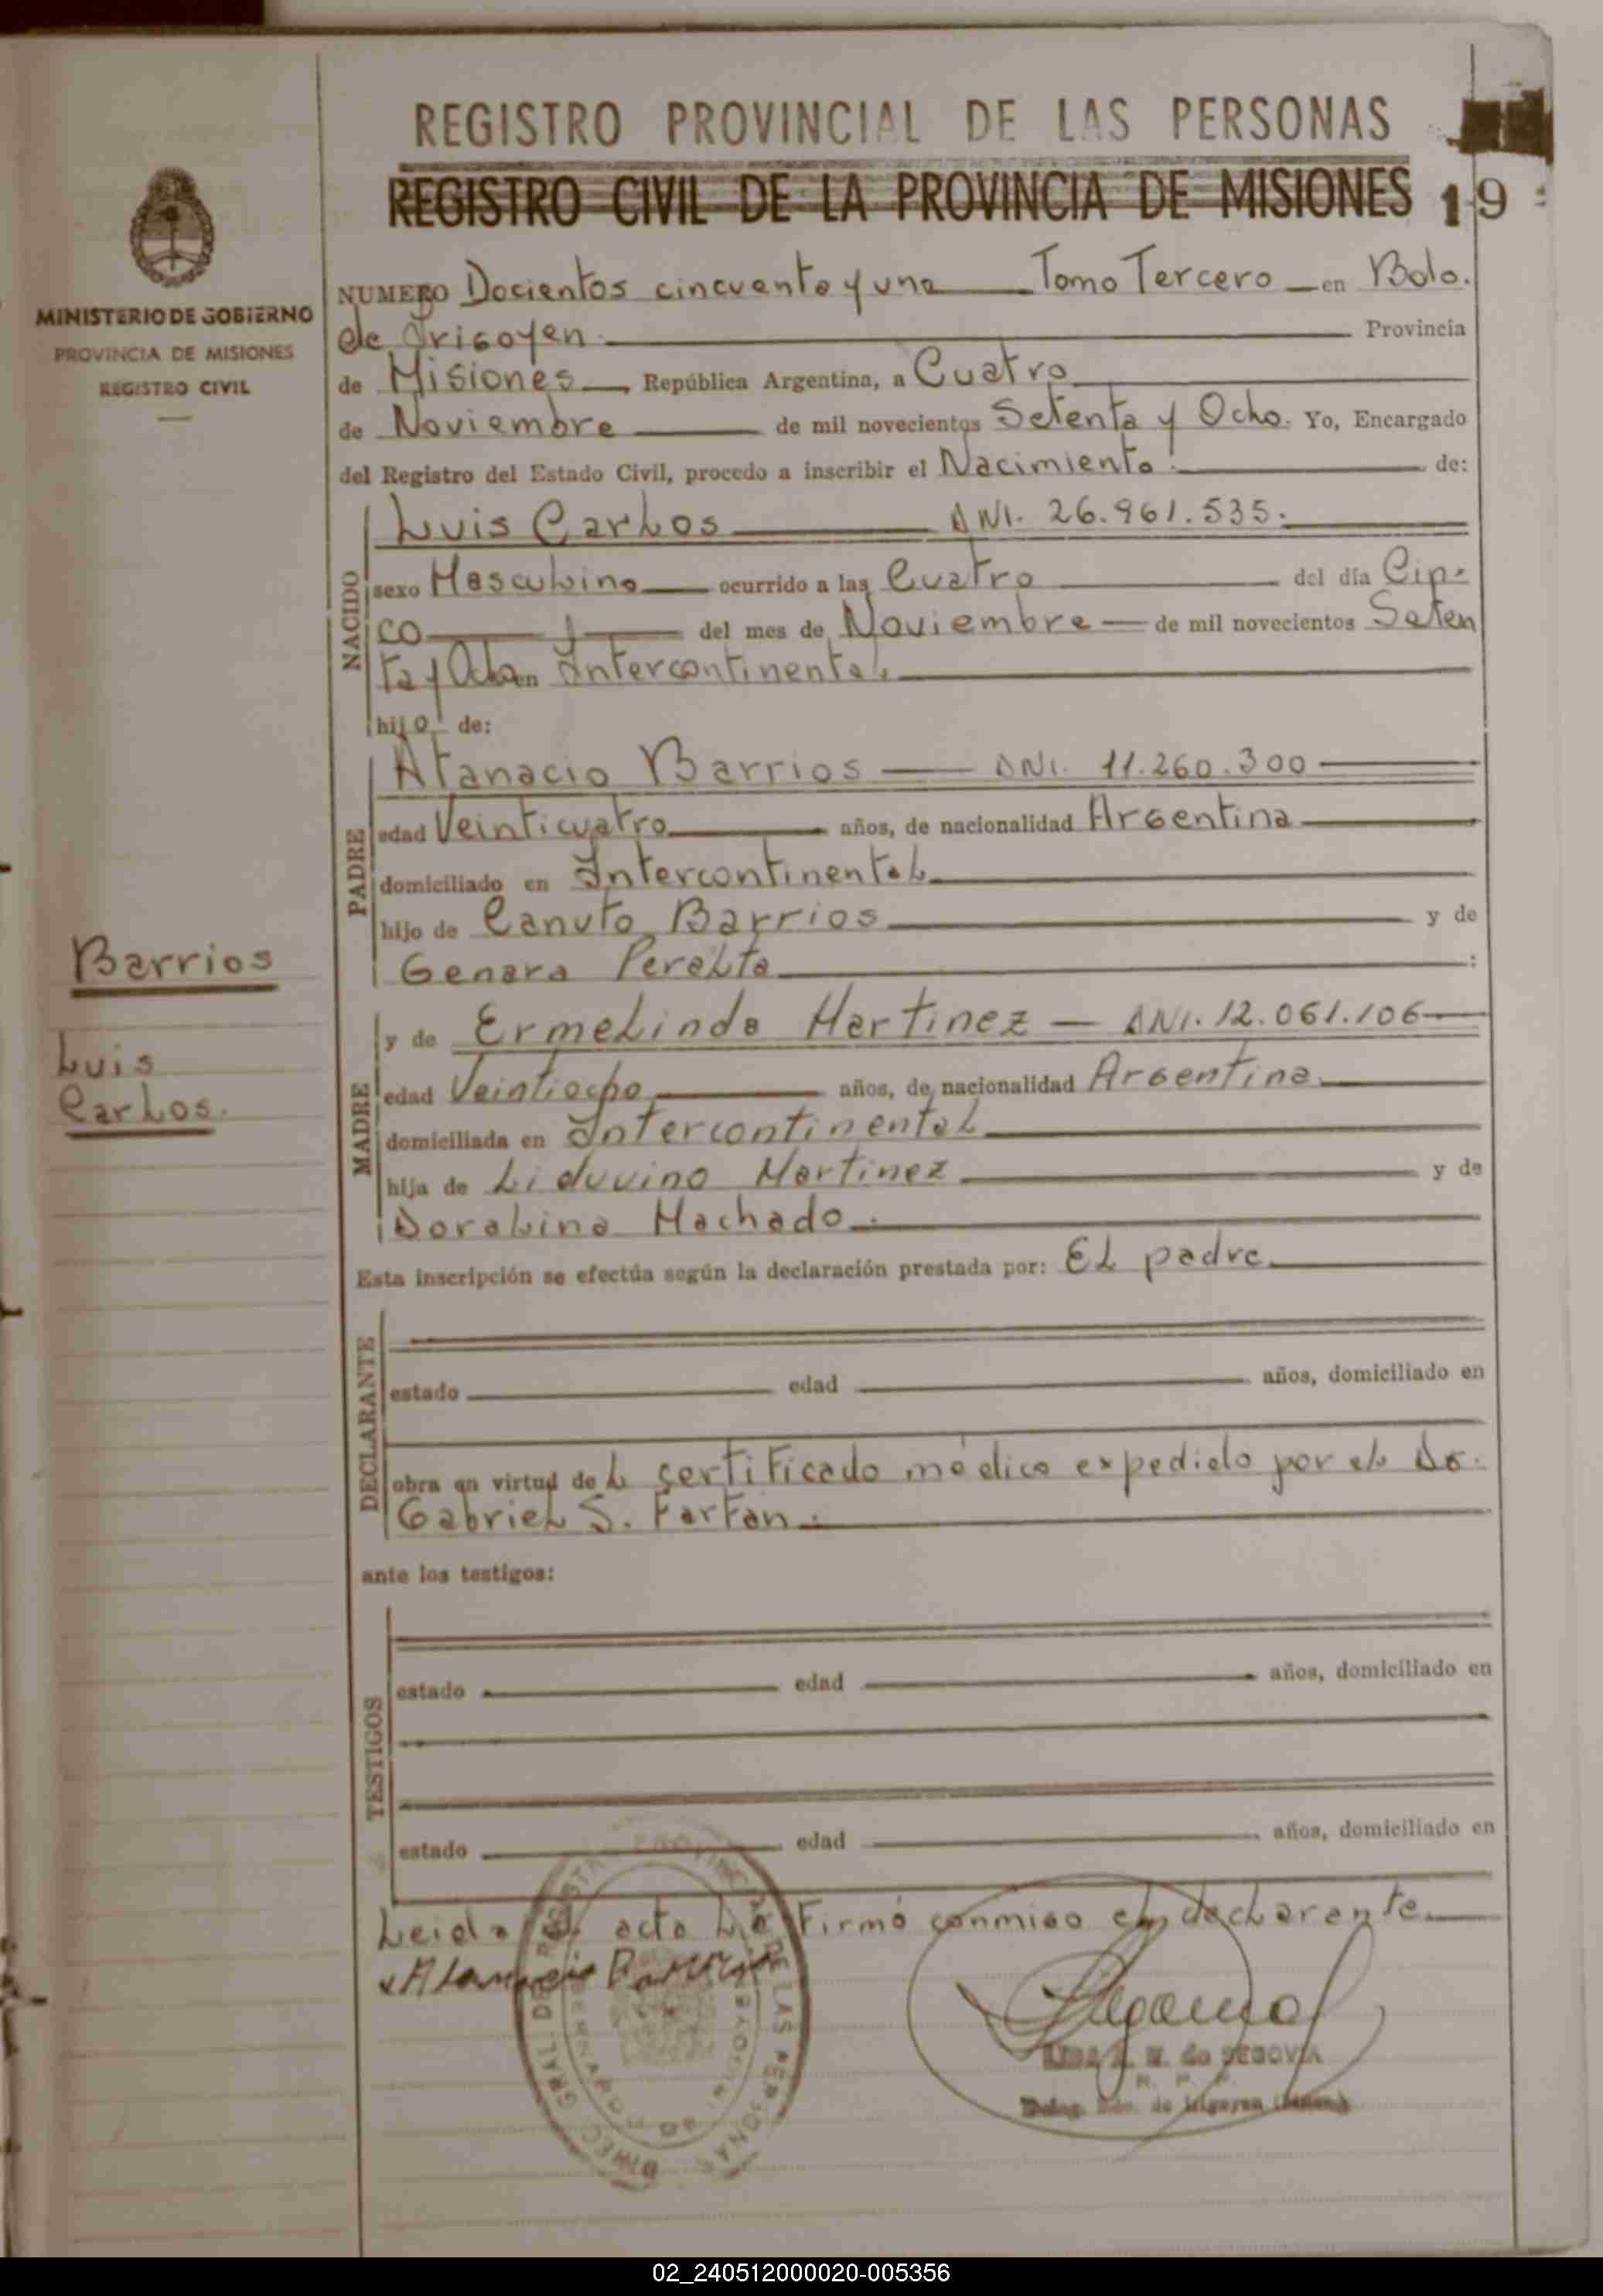 REGISTRO PROVINCIAL DE LAS PERSONAS
REGISTRO CIVIL DE LA PROVINCIA DE MISIONES 19
MINISTERIO DE GOBIERNO
PROVINCIA DE MISIONES
REGISTRO CIVIL
NUMERO Docientos cincuenta y una Tomo Tercero en Bdo.
de Irigoyen. Provincia
de Misiones, República Argentina, a Cuatro
de Noviembre de mil novecientos Setenta y Ocho. Yo, Encargado
del Registro del Estado Civil, procedo a inscribir el Nacimiento. de:
NACIDO
Luis Carlos DNI. 26.961.535.
sexo Masculino ocurrido a las Cuatro del día Cin-
co del mes de Noviembre de mil novecientos Seten
ta y Ocho en Intercontinental.
hijo de:
PADRE
Atanacio Barrios DNI. 11.260.300
edad Veinticuatro años, de nacionalidad Argentina
domiciliado en Intercontinental
hijo de Canuto Barrios y de
Genara Peralta :
Barrios
Luis
Carlos.
MADRE
y de Ermelinda Martinez DNI. 12.061.106
edad Veintiocho años, de nacionalidad Argentina
domiciliada en Intercontinental
hija de Liduvino Martinez y de
Doralina Machado.
Esta inscripción se efectúa según la declaración prestada por: El padre
DECLARANTE
estado edad años, domiciliado en
obra en virtud del certificado médico expedido por el Dr.
Gabriel S. Farfan.
ante los testigos:
TESTIGOS
estado edad años, domiciliado en
estado edad años, domiciliado en
Leida el acta la Firmó conmigo el declarante
Atanacio Barrios
DIREC. GRAL. DEL REGISTRO PROVINCIAL DE LAS PERSONAS
BERNARDO DE IRIGOYEN
de SEGOVIA
Deleg. Bdo. de Irigoyen
02_240512000020-005356